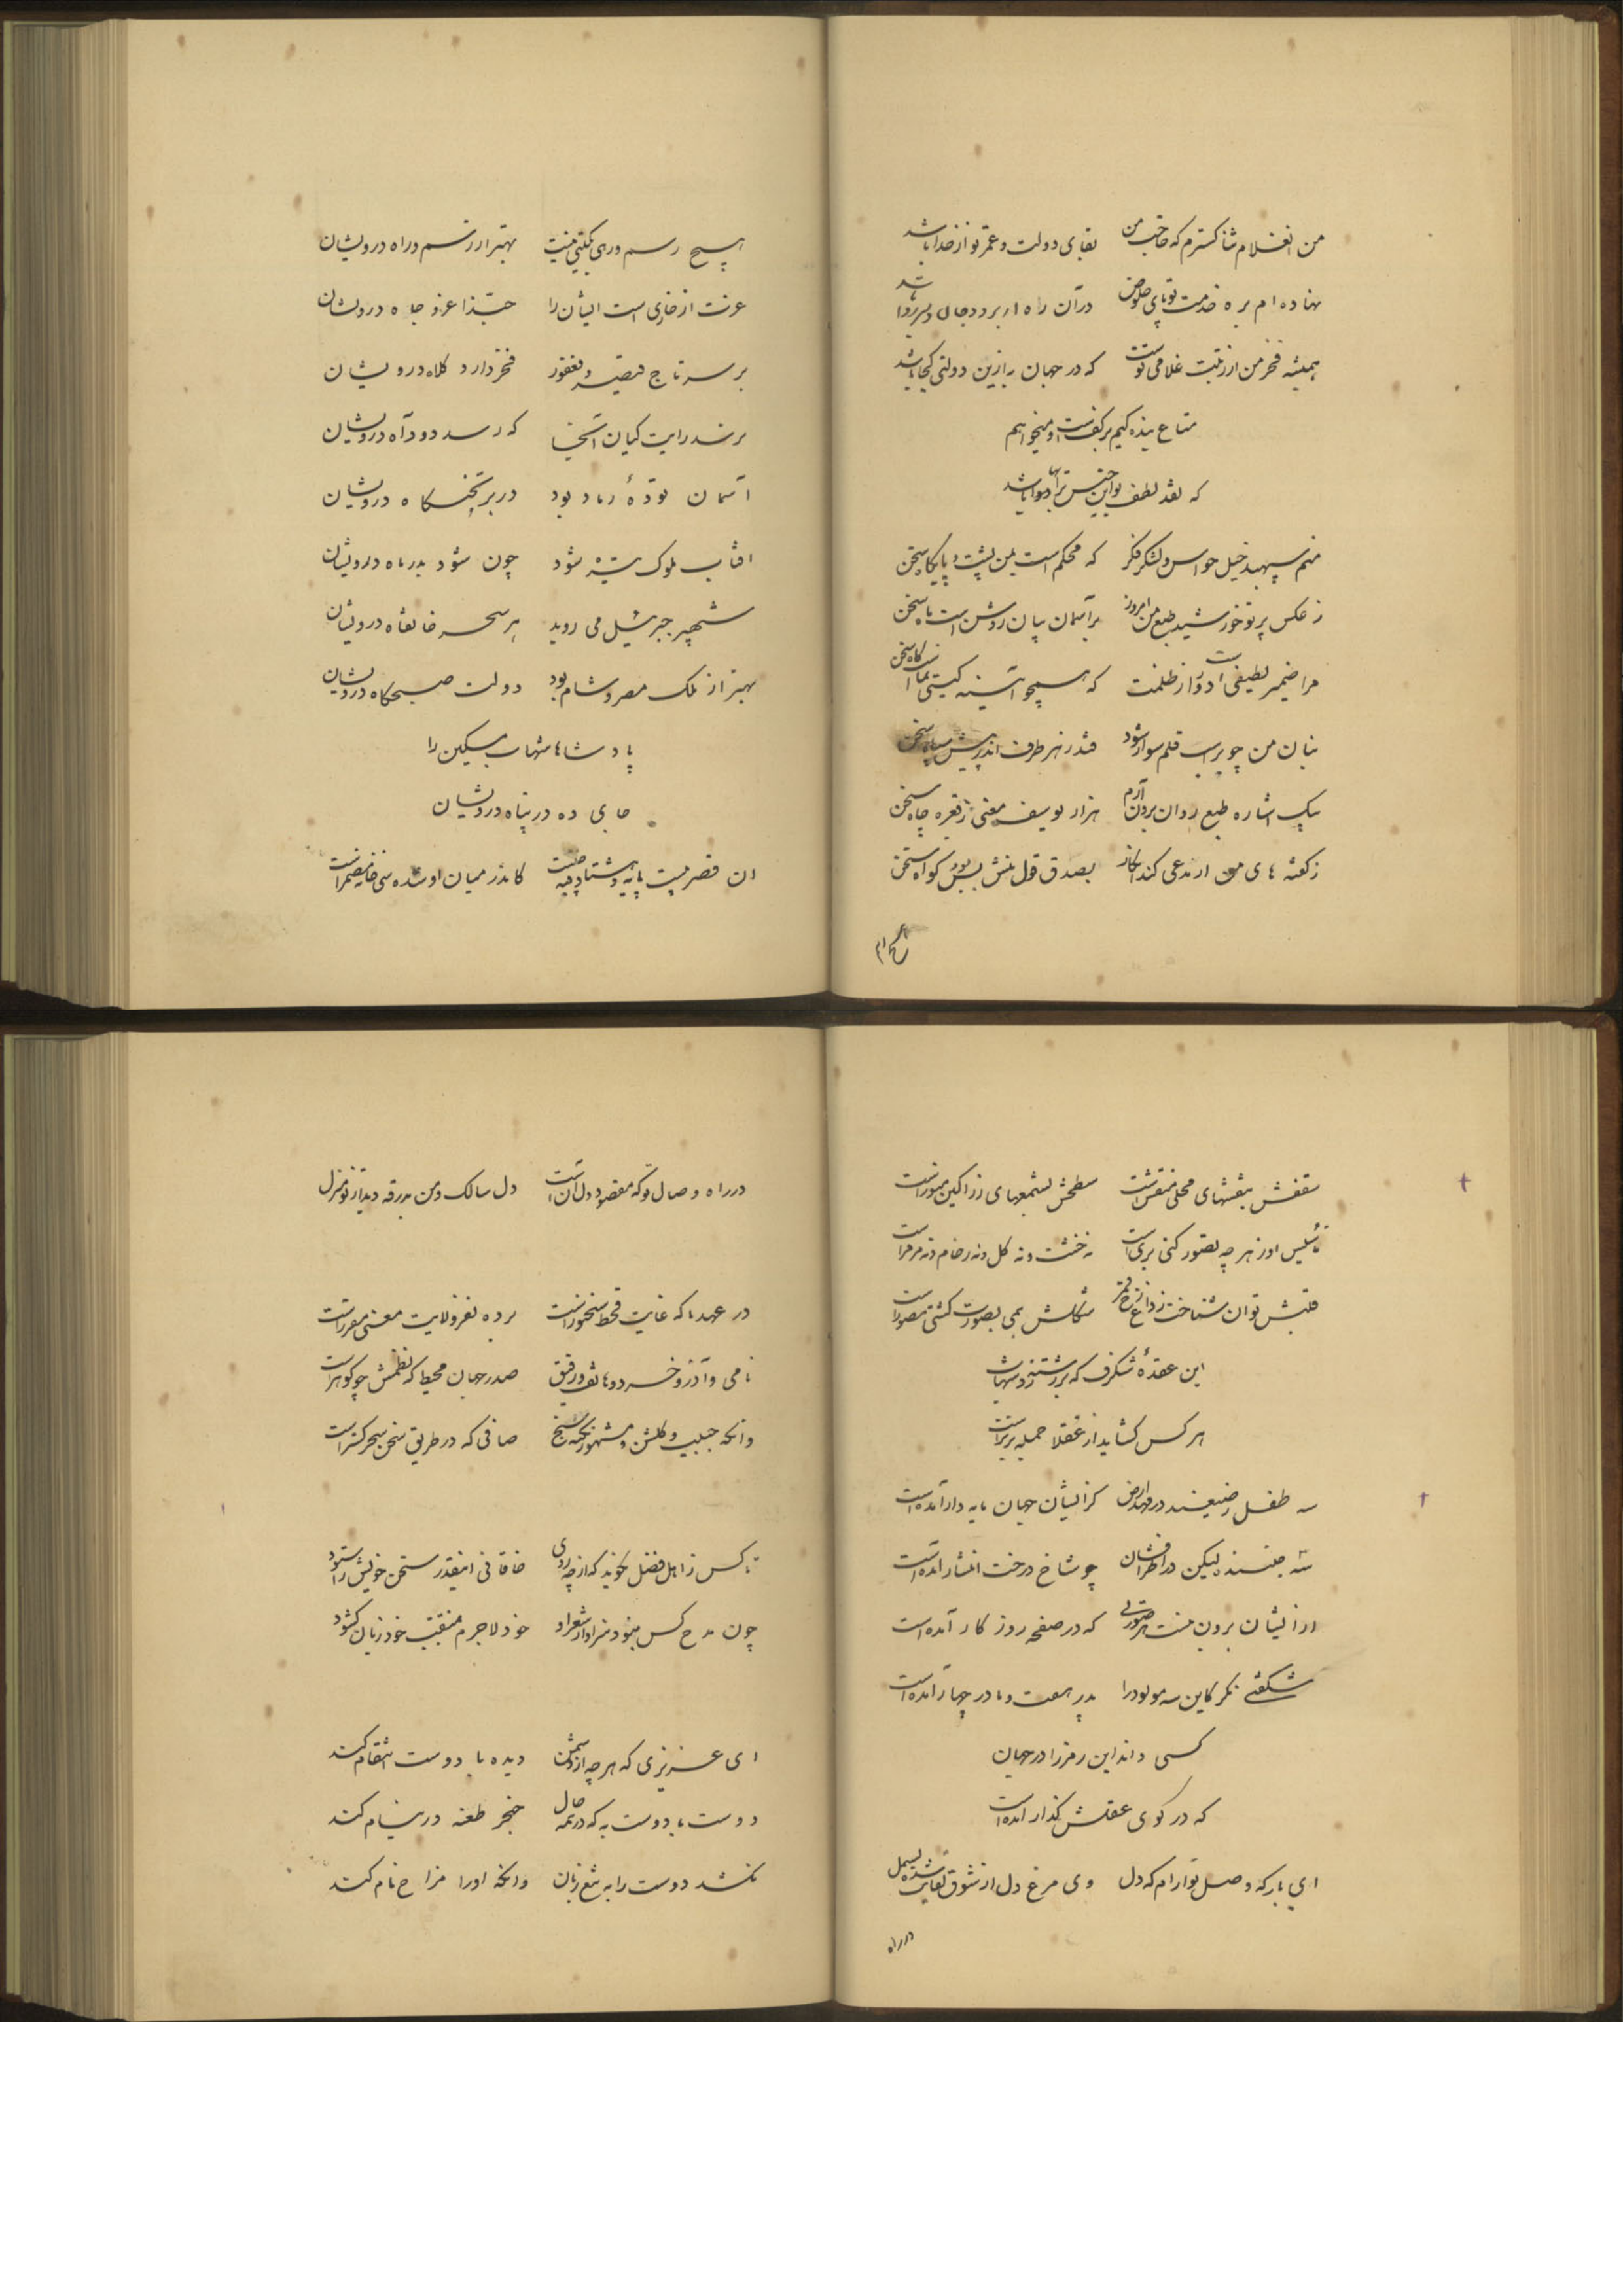 من انغلام ثنا کسترم که صاحب من بقای دولت و عمر تو از خدا باشد
نهاده ام بره خدمت تو پای خلوص در آن راه ار برود جان و سر روا باشد
همیشه فخر من از رتبت غلامی تست که در جهان به ازین دولتی کجا باشد
متاع بنده کیم بر کف است و میخواهم
که نقد لطف تو این جنس را بها باشد
منم سپهبد خیل حواس و لشکر فکر که محکم است بمن پشت و پایکاه سخن
ز عکس پرتو خورشید طبع من امروز بر آسمان بیان روشن است ماه سخن
مرا ضمیر لطیفی است دور از ظلمت که همچو آئینه کیتی نما است کاه سخن
بنان من چو بر اسب قلم سوار شود فتد ز هر طرف اندر پیش سپاه سخن
بیک اشاره طبع روان برون آرم هزار یوسف معنی ز قعر چاه سخن
ز کفته های من ار مدعی کند انکار بصدق قول منش بس بود کواه سخن
هیچ رسم و رهی بکیتی نیست بهتر از رسم و راه درویشان
عزت از خاری است ایشان را حبّذا عز و جاه درویشان
بر سر تاج قیصر و فغفور فخر دارد کلاه درویشان
برسد رایت کیان آنجا که رسد دود آه درویشان
آسمان تودهٔ رماد بود در بر تختگاه درویشان
افتاب ملوک تیره شود چون شود بدر ماه درویشان
شهپر جبرئیل می روید هر سحر خانقاه درویشان
بهتر از ملک مصر و شام بود دولت صبحکاه درویشان
پادشاها شهاب مسکین را
جای ده در پناه درویشان
ان قصر چیست پایه و هشتاد و جیه چیست کاندر میان او شده سی خانه مضمر است
سقفش بنقشهای محلی منقش است سطحش بشمعهای زراکین منور است
تأسیس او ز هر چه تصور کنی بری است نه خشت و نه کل و نه رخام و نه مرمر است
قلبش توان شناخت ز داغ رخ قمر شکلش همی بصورت کشتی مصور است
این عقدهٔ شکرف که بر رشته زد شهاب
هر کس کشاید از عقلا جمله برتر است
سه طفل رضیعند در مهد ارض کز ایشان جهان مایه دار آمده است
سه جنسند لیکن در اطرافشان چو شاخ درخت انشار آمده است
از ایشان برون نیست هر صورتی که در صفحه روز کار آمده است
شکفتی نکر کاین سه مولود را پدر هفت و مادر چهار آمده است
کسی داند این رمز را در جهان
که در کوی عقلش کذار آمده است
ای بار که وصل تو آرام که دل وی مرغ دل از شوق لقایت شده بسمل
در راه
در راه وصال تو که مقصود دل آن است دل سالک و من بدرقه دیدار تو منزل
در عهد ما که غایت قحط سخنور است برده نفر ولایت معنی مقرر است
نامی و آذر و خسرو و هاتف و رفیق صدر جهان محیط که نظمش چو کوهر است
وانکه حبیب و کلشن و مشهور نکته سنج صافی که در طریق سخن سحر کستر است
تا کس ز اهل فضل نکوید که از چه روی خاقانی اینقدر سخن خویش را ستود
چون مدح کس نبود سزاوار شعر او خود لاجرم بمنقبت خود زبان کشود
ای عزیزی که هر چه از دشمن دیده با دوست انتقام کند
دوست با دوست به که در همه حال خنجر طعنه در نیام کند
نکشد دوست را به تیغ زبان وانکه او را مزاح نام کند